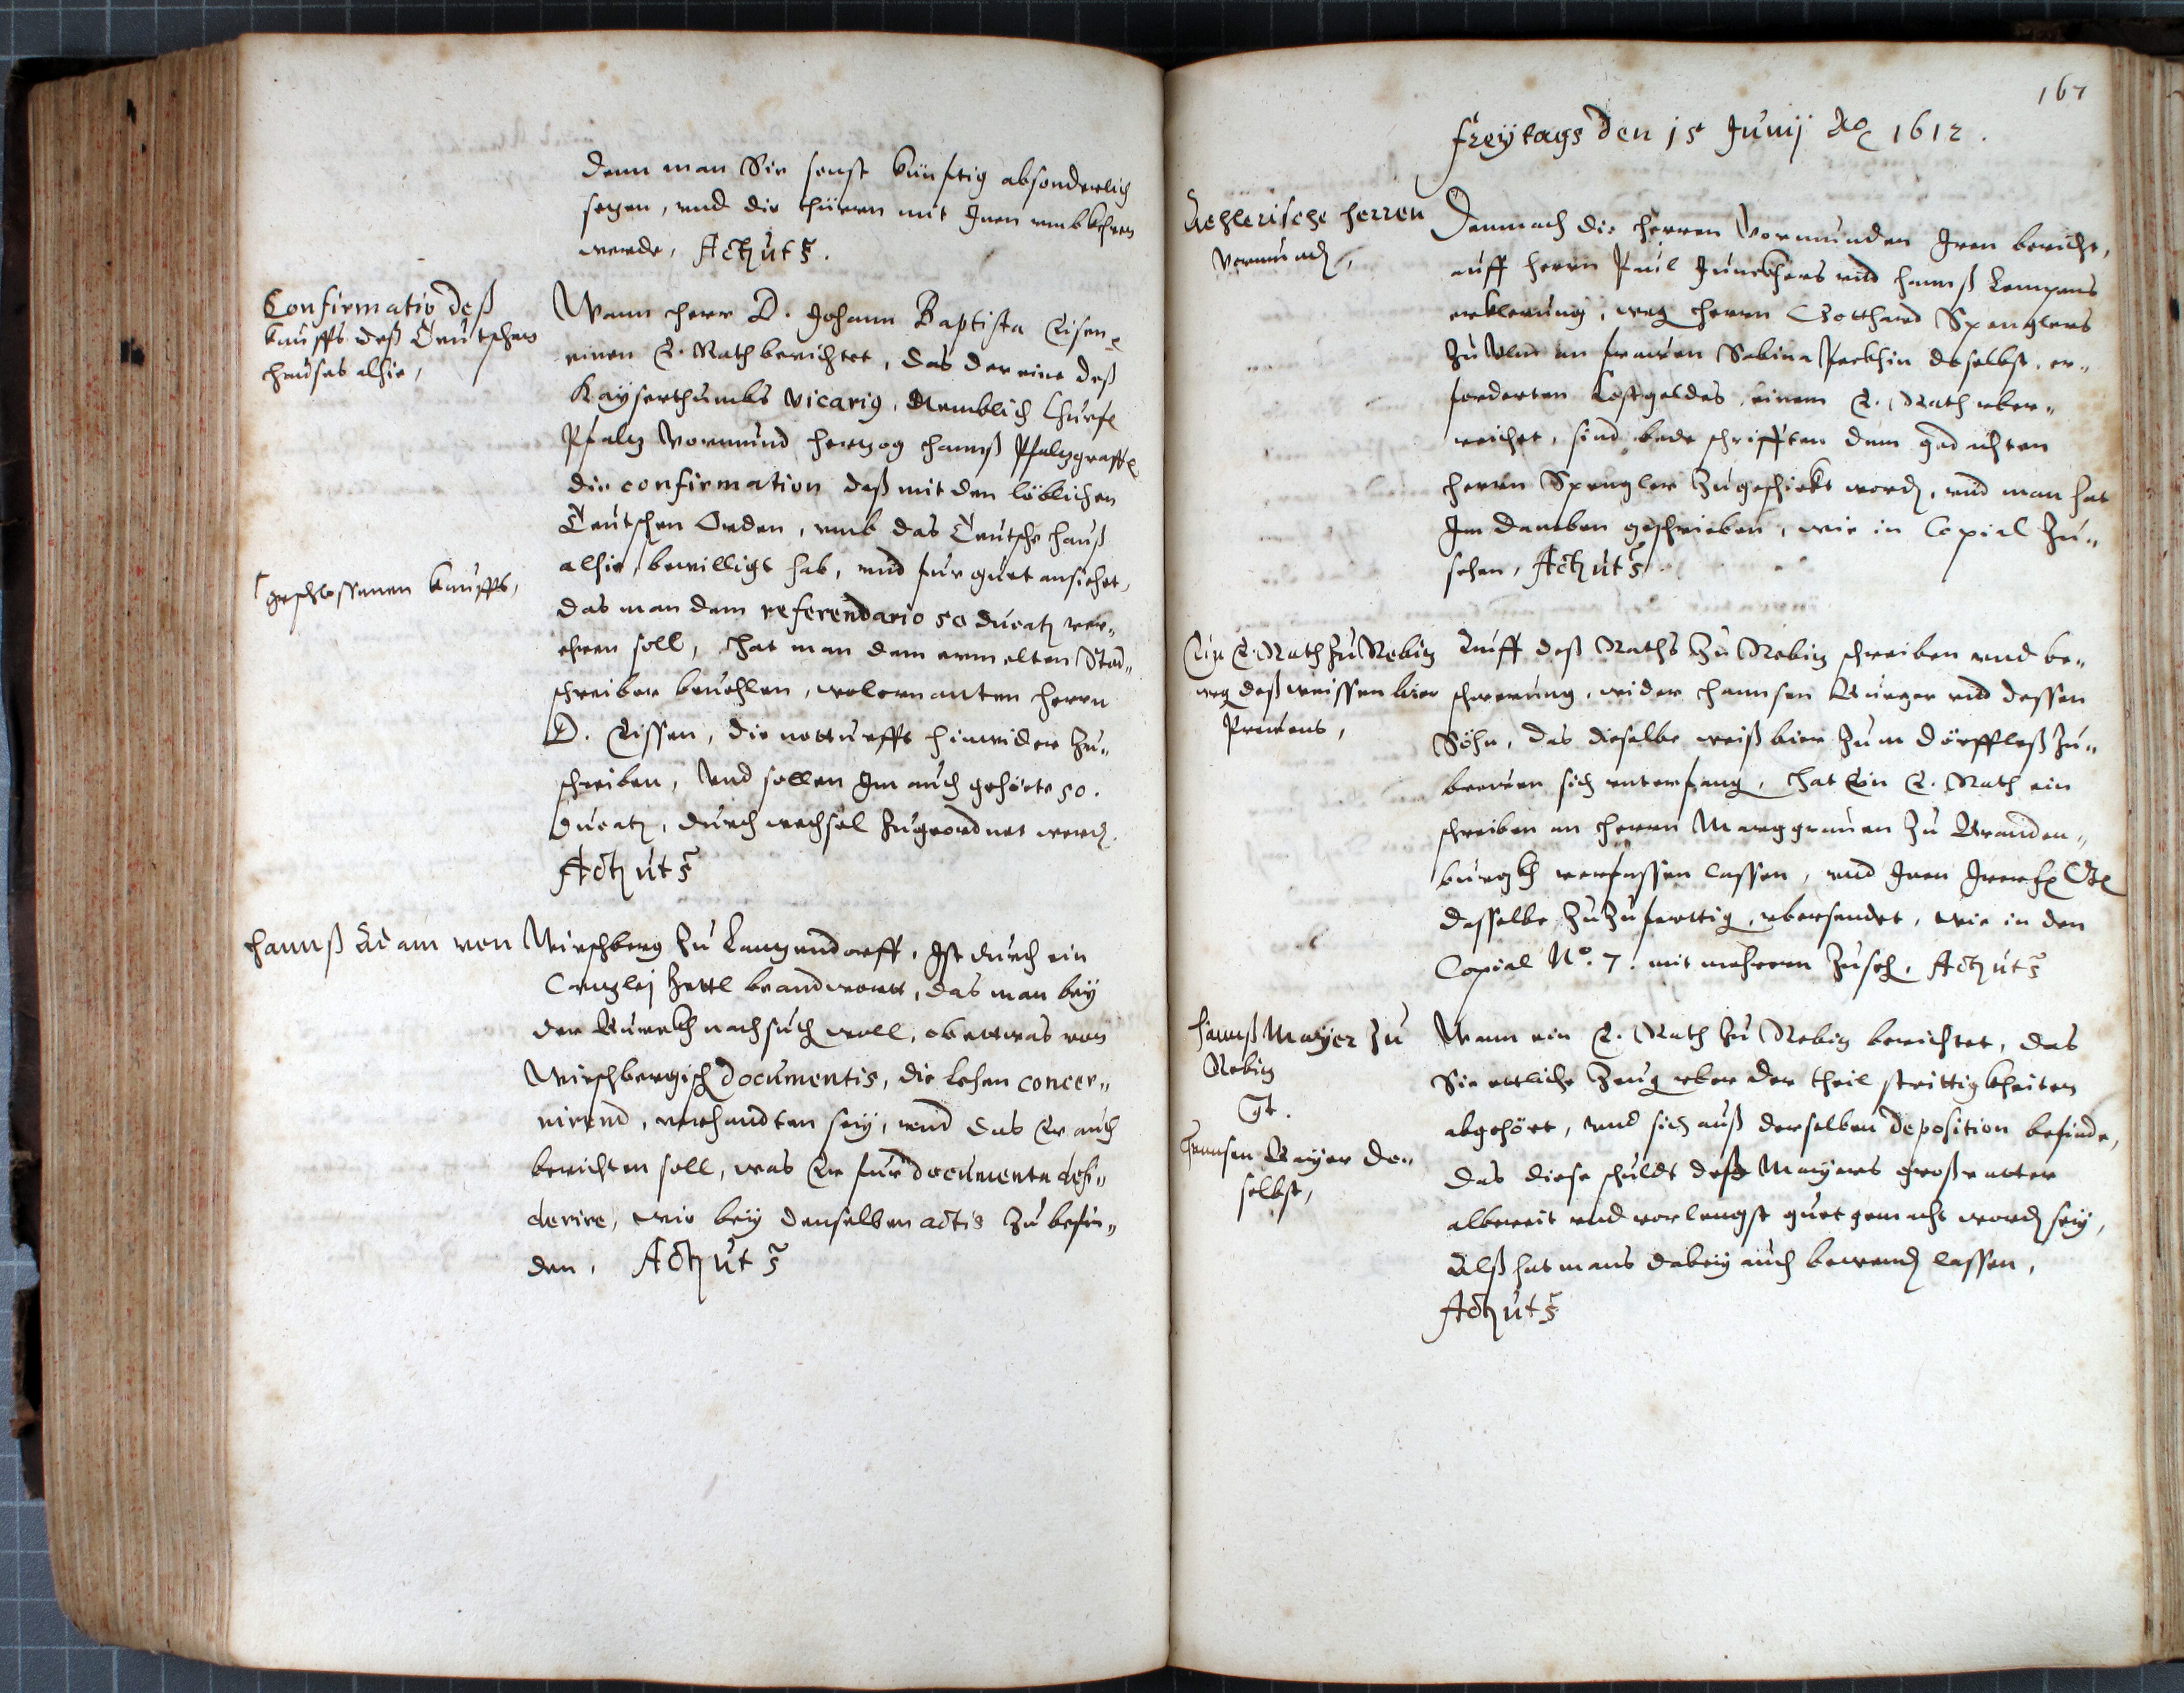 denn man Sie sonst künftig absonderlich
setzen, und die thüren mit Inen umbkheren
werde, Actum ut s.
Confirmatio deß
kauffs deß Teutschen
hauses alhie,
Wann herr D. Johann Baptista Eisen
einen E. Rath berichtet, das der eine deß
Kayserthumbs Vicarius, Nemblich Churf.
Pfaltz Vormund hertzog hannß Pfaltzgraff
die confirmation deß mit den löblichen
Teutschen Orden, umb das Teutsche hauß
alhie, bewilligt hab, und für guet ansiehet,
geschlossenen kauffs,
das man dem referendario 50 ducaten ver-,
ehren soll, hat man dem ermelten Stad-,
schreiber bevehlen, wolernanten herrn
D. Eissen, die notturfft hinwider zu-,
schreiben, und sollen Im auch gehörte 50.
ducaten, durch wechsel zugeordnet werden.
Actum ut s.
hannß Adam von Wirschberg zu Lanzendorff, Ist durch ein
Canzlej Zettl beandwortt, das man bey
der Burckh nachsuchen woll, ob ettwas von
Wirschbergischen documentis, die Lehen concer-,
nirend, verhandten sey, und das Er auch
berichten soll, was Er für documenta desi-,
derire, wie bey denselben actis zu befin-,
den, Actum ut s.
167
Freytags den 15 Junij Ao 1612.
herren
Vormunden,
Demnach die herren Vormunden Iren bericht,
auff herrn Paul Junckhers und hannß Lempens
erklerung, wegen herrn Gotthard Spenglers
zu Ulm an frauen Sabina daselbst, er-,
forderten Costgeldes, einem E. Rath uber-,
reichet, sind bede schrifften dem gedachten
herrn Spengler zugeschickt worden, und man hat
Im daneben geschrieben, wie in Copial zu-,
sehen, Actum ut s.
Ein E. Rath zu Rebiz
wegen deß weissen bier
Preuens,
Auff deß Raths zu Rebiz schreiben und be-,
schwerung, wider hannsen Burger und dessen
Söhn, das dieselbe weiß bier zum dörffleß zu-,
breuen sich unterfangen, hat Ein E. Rath ein
schreiben an herrn Marggrauen zu Branden-,
burgkh verfassen lassen, und Inen
dasselbe zuzufertigen, ubersendet, wie in den
Copial No. 7. mit mehrern zusehen, Actum ut s.
hannß Mayer zu
Rebiz
Gt.
hannsen Bayer do-,
selbst,
Wann ein E. Rath zu Rebiz berichtet, das
Sie ettliche Zeug uber der theil strittigkheiten
abgehört, und sich auß derselben deposition befinde,
das diese schuldt deß Mayers großvatter
albereit und vorlengst guet gemacht worden sey,
Alß hat mans dabey auch bewenden lassen,
Actum ut s.